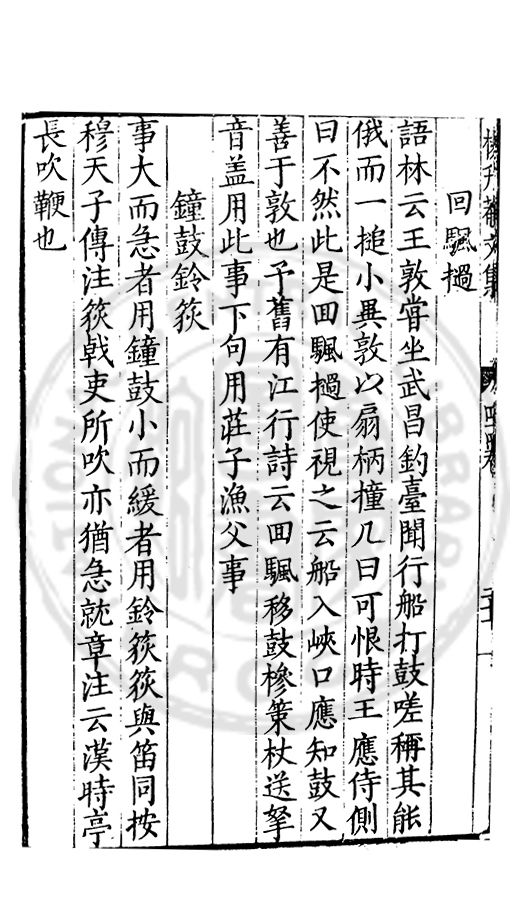 回颿撾
語林云王敦嘗坐武昌釣臺聞行船打鼓嗟稱其能
俄而一搥小異敦以扇柄撞几曰可恨時王應侍側
曰不然此是回颿撾使視之云船入峽口應知鼓又
善于敦也予舊有江行詩云回颿移鼓槮策杖送拏
音盖用此事下句用莊子漁父事
鐘鼓鈴篍
事大而急者用鐘鼓小而緩者用鈴篍篍與笛同按
穆天子傳注篍戟吏所吹亦猶急就章注云漢時亭
長吹鞭也